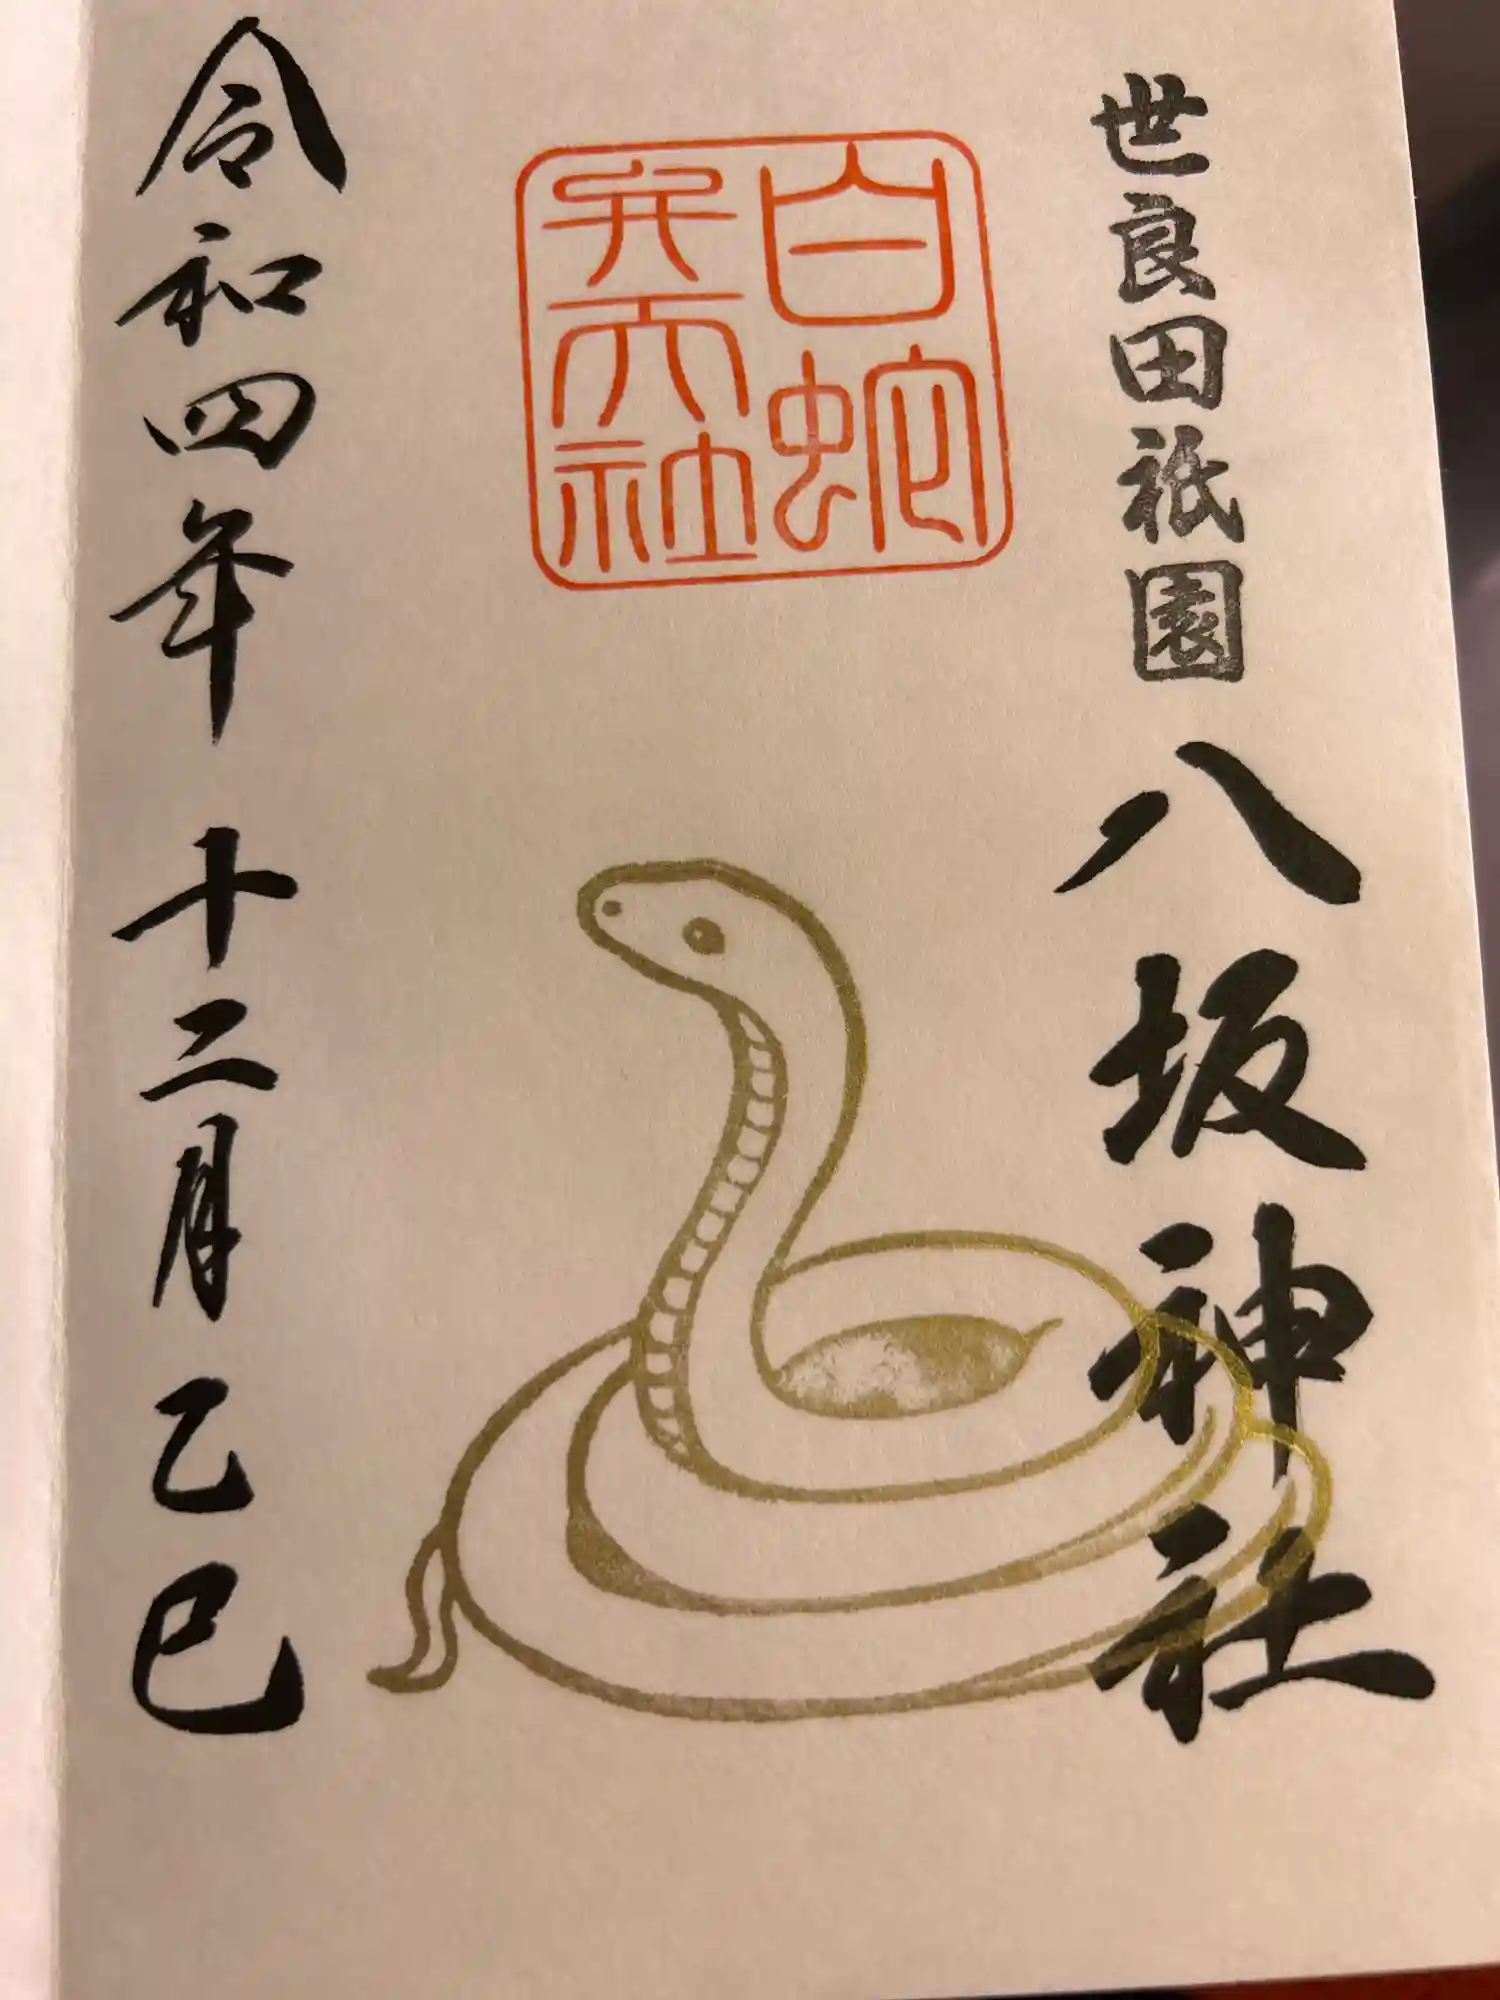 世良田祇園
八坂神社
白蛇
弁天社
令和四年 十二月 乙巳